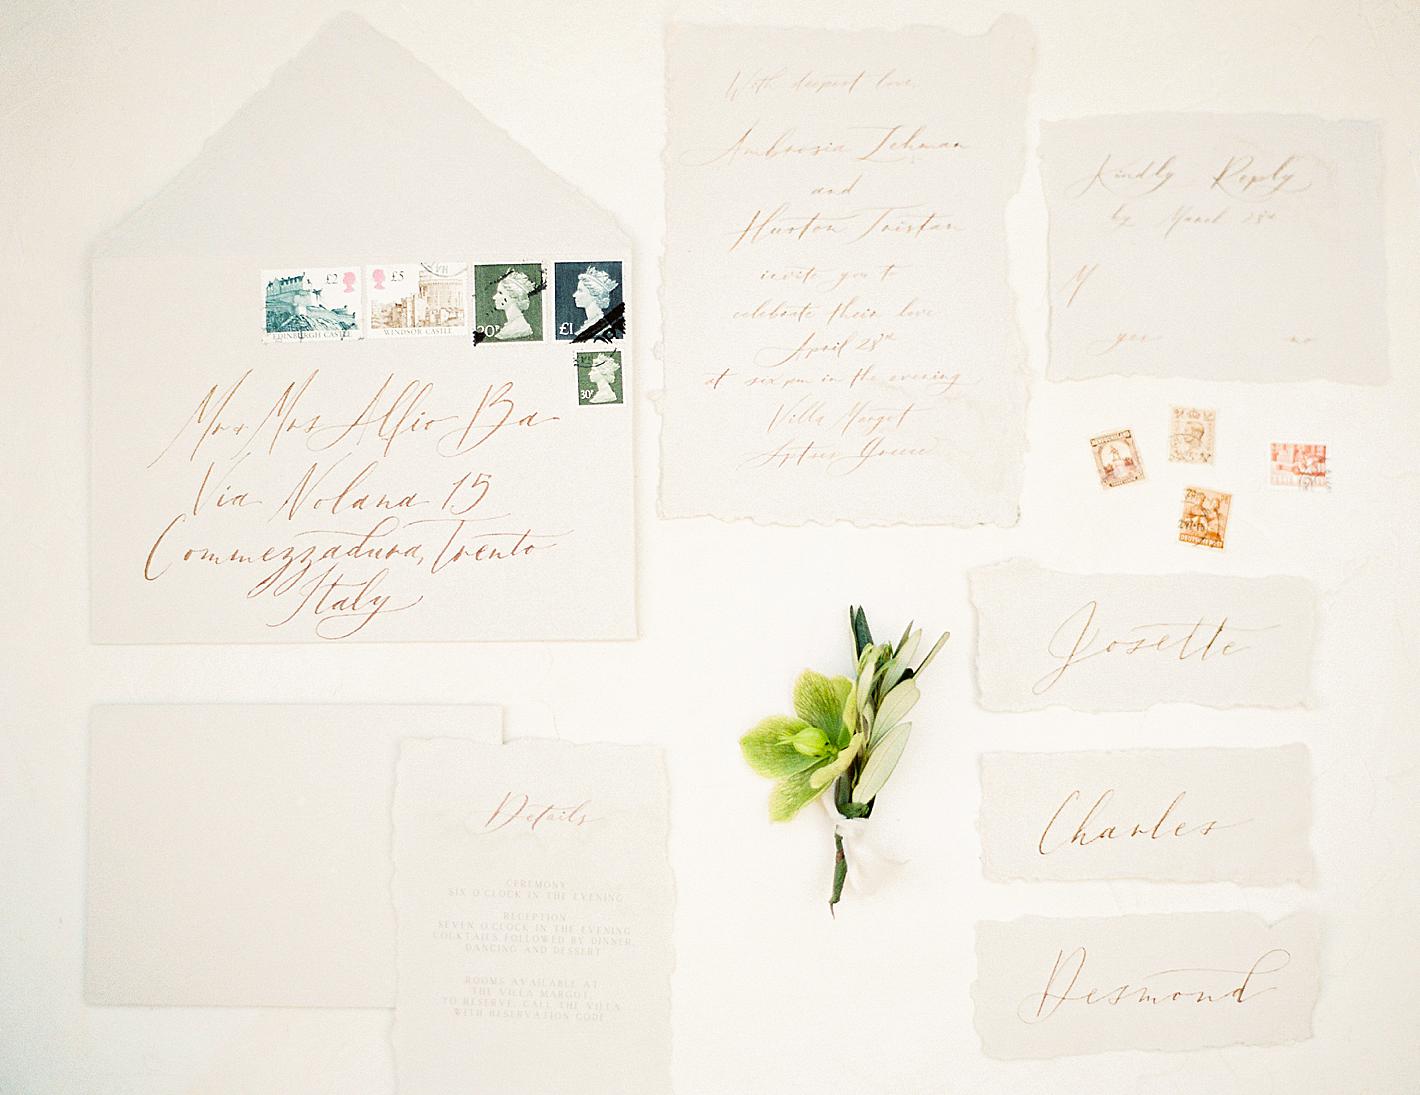 £2
EDINBURGH CASTLE
£5
WINDSOR CASTLE
£1
30P
Mr + Mrs Alfio Ba
Via Nolana 15
Commezzadura, Trento
Italy
With deepest love,
Ambrosia Lehman
and
Huxton Tristan
invite you to
celebrate their love
April 23rd
at six pm in the evening
Villa Margot
Kindly Reply
by March 23rd
M
yes no
Josette
Charles
Desmond
Details
CEREMONY
SIX O'CLOCK IN THE EVENING
RECEPTION
SEVEN O'CLOCK IN THE EVENING
COCKTAILS FOLLOWED BY DINNER,
DANCING AND DESSERT
ROOMS AVAILABLE AT
THE VILLA MARGOT
TO RESERVE, CALL THE VILLA
WITH RESERVATION CODE